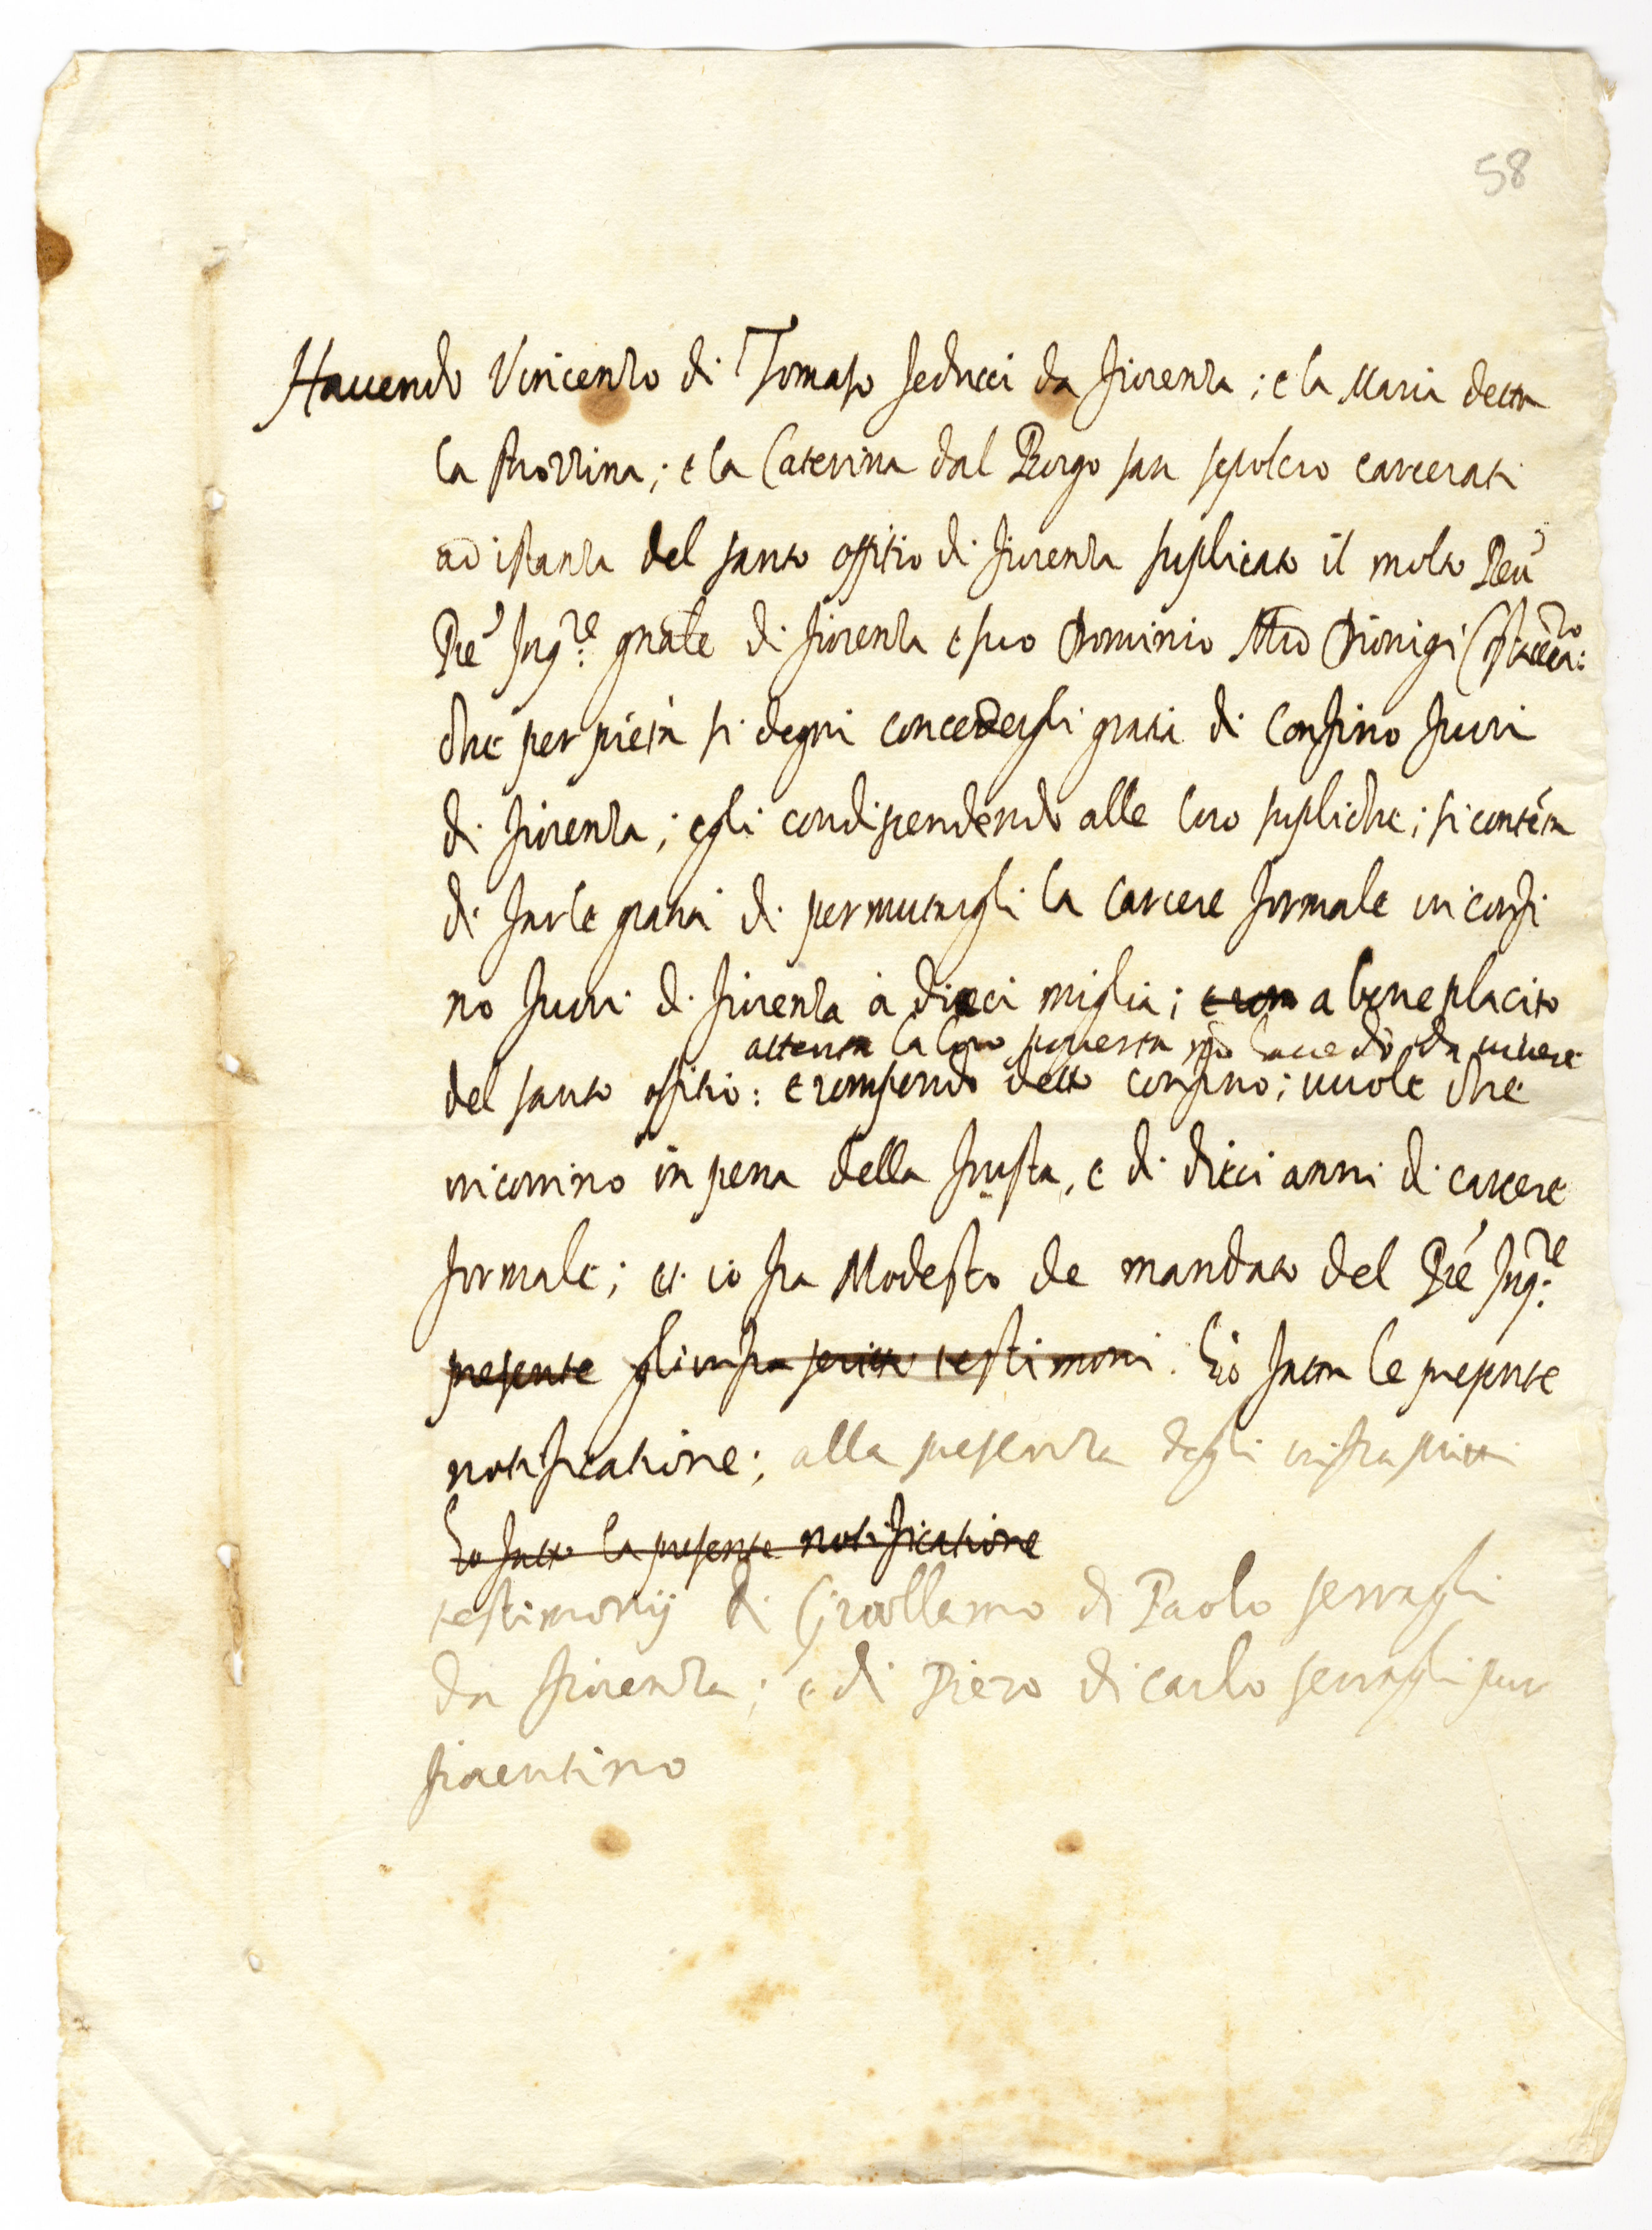 58
Havendo Vincenzo di Tomaso seducci da fiorenza; e la Maria detta
la strozzina; e la Caterina dal Borgo san sepolcro carcerati
ad istanza del santo offitio di fiorenza suplicato il molto Reu
Pre Inqre gnale di fiorenza e suo Dominio Mro Dionigi
che per pietà si degni concedergli gratia di confino fuori
di fiorenza; egli condispendendo alle loro supliche; si contéta
di farle gratia di permutargli la carcere formale in confi
no fuori di fiorenza à dieci miglia; e con a beneplacito
attenta la loro pouerta nō hauēdo da viuere
del santo offitio: e rompendo detto confino; vuole che
incorrino in pena della frusta, e di dieci anni di carcere
formale; et io fra Modesto de mandato del Pre Inqre
presente gli infra scritti testimoni. hò fatta le presente
notificatione; alla presenza degli infrascritti
ho fatto la presente notificatione
testimonij di Girollamo di Paolo serragli
da fiorenza; e di Piero di carlo serragli pur
fiorentino